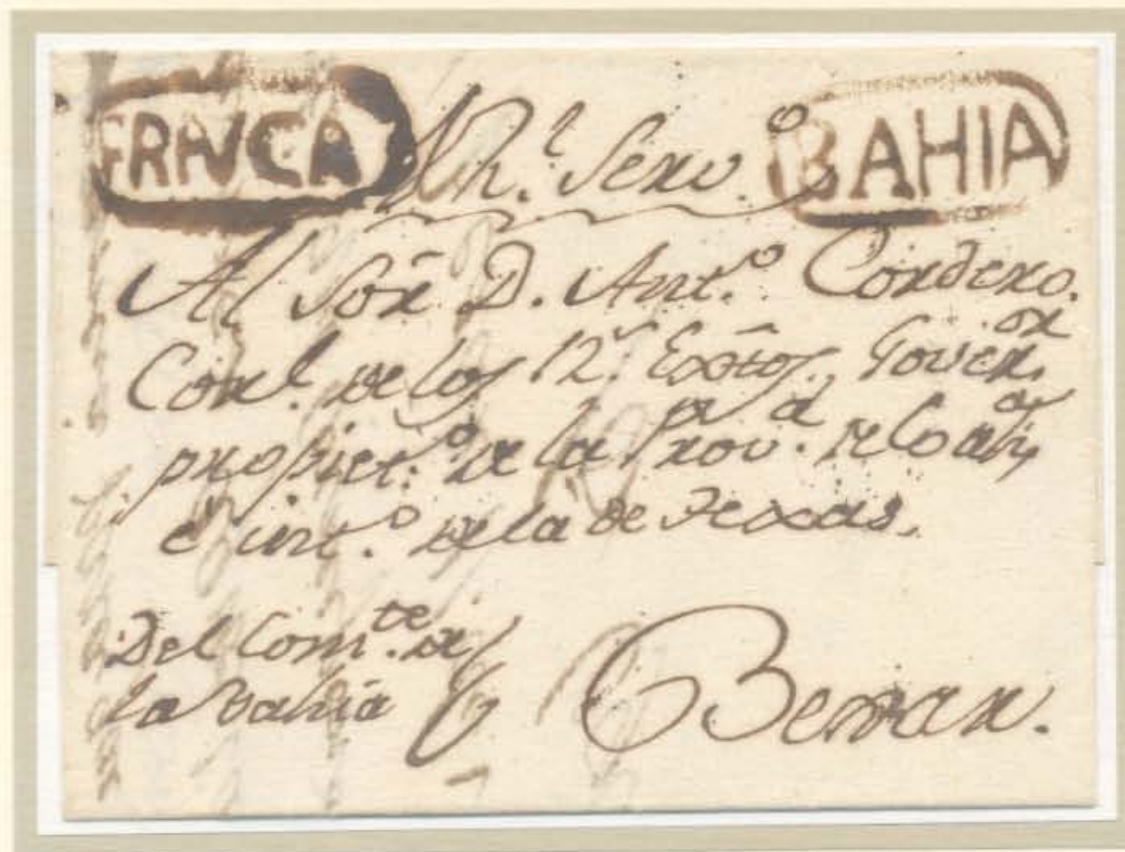 FRANCA
Rl. Serv.o
BAHIA
Al Sōr. D. Ant.o Cordero.
Corl. de los Rs. Extos. Gover.or
propiet.o de la Prov.a de Coah.a
é int.o de la de Texas.
Del Com.te de
la Bahia
Bexar.